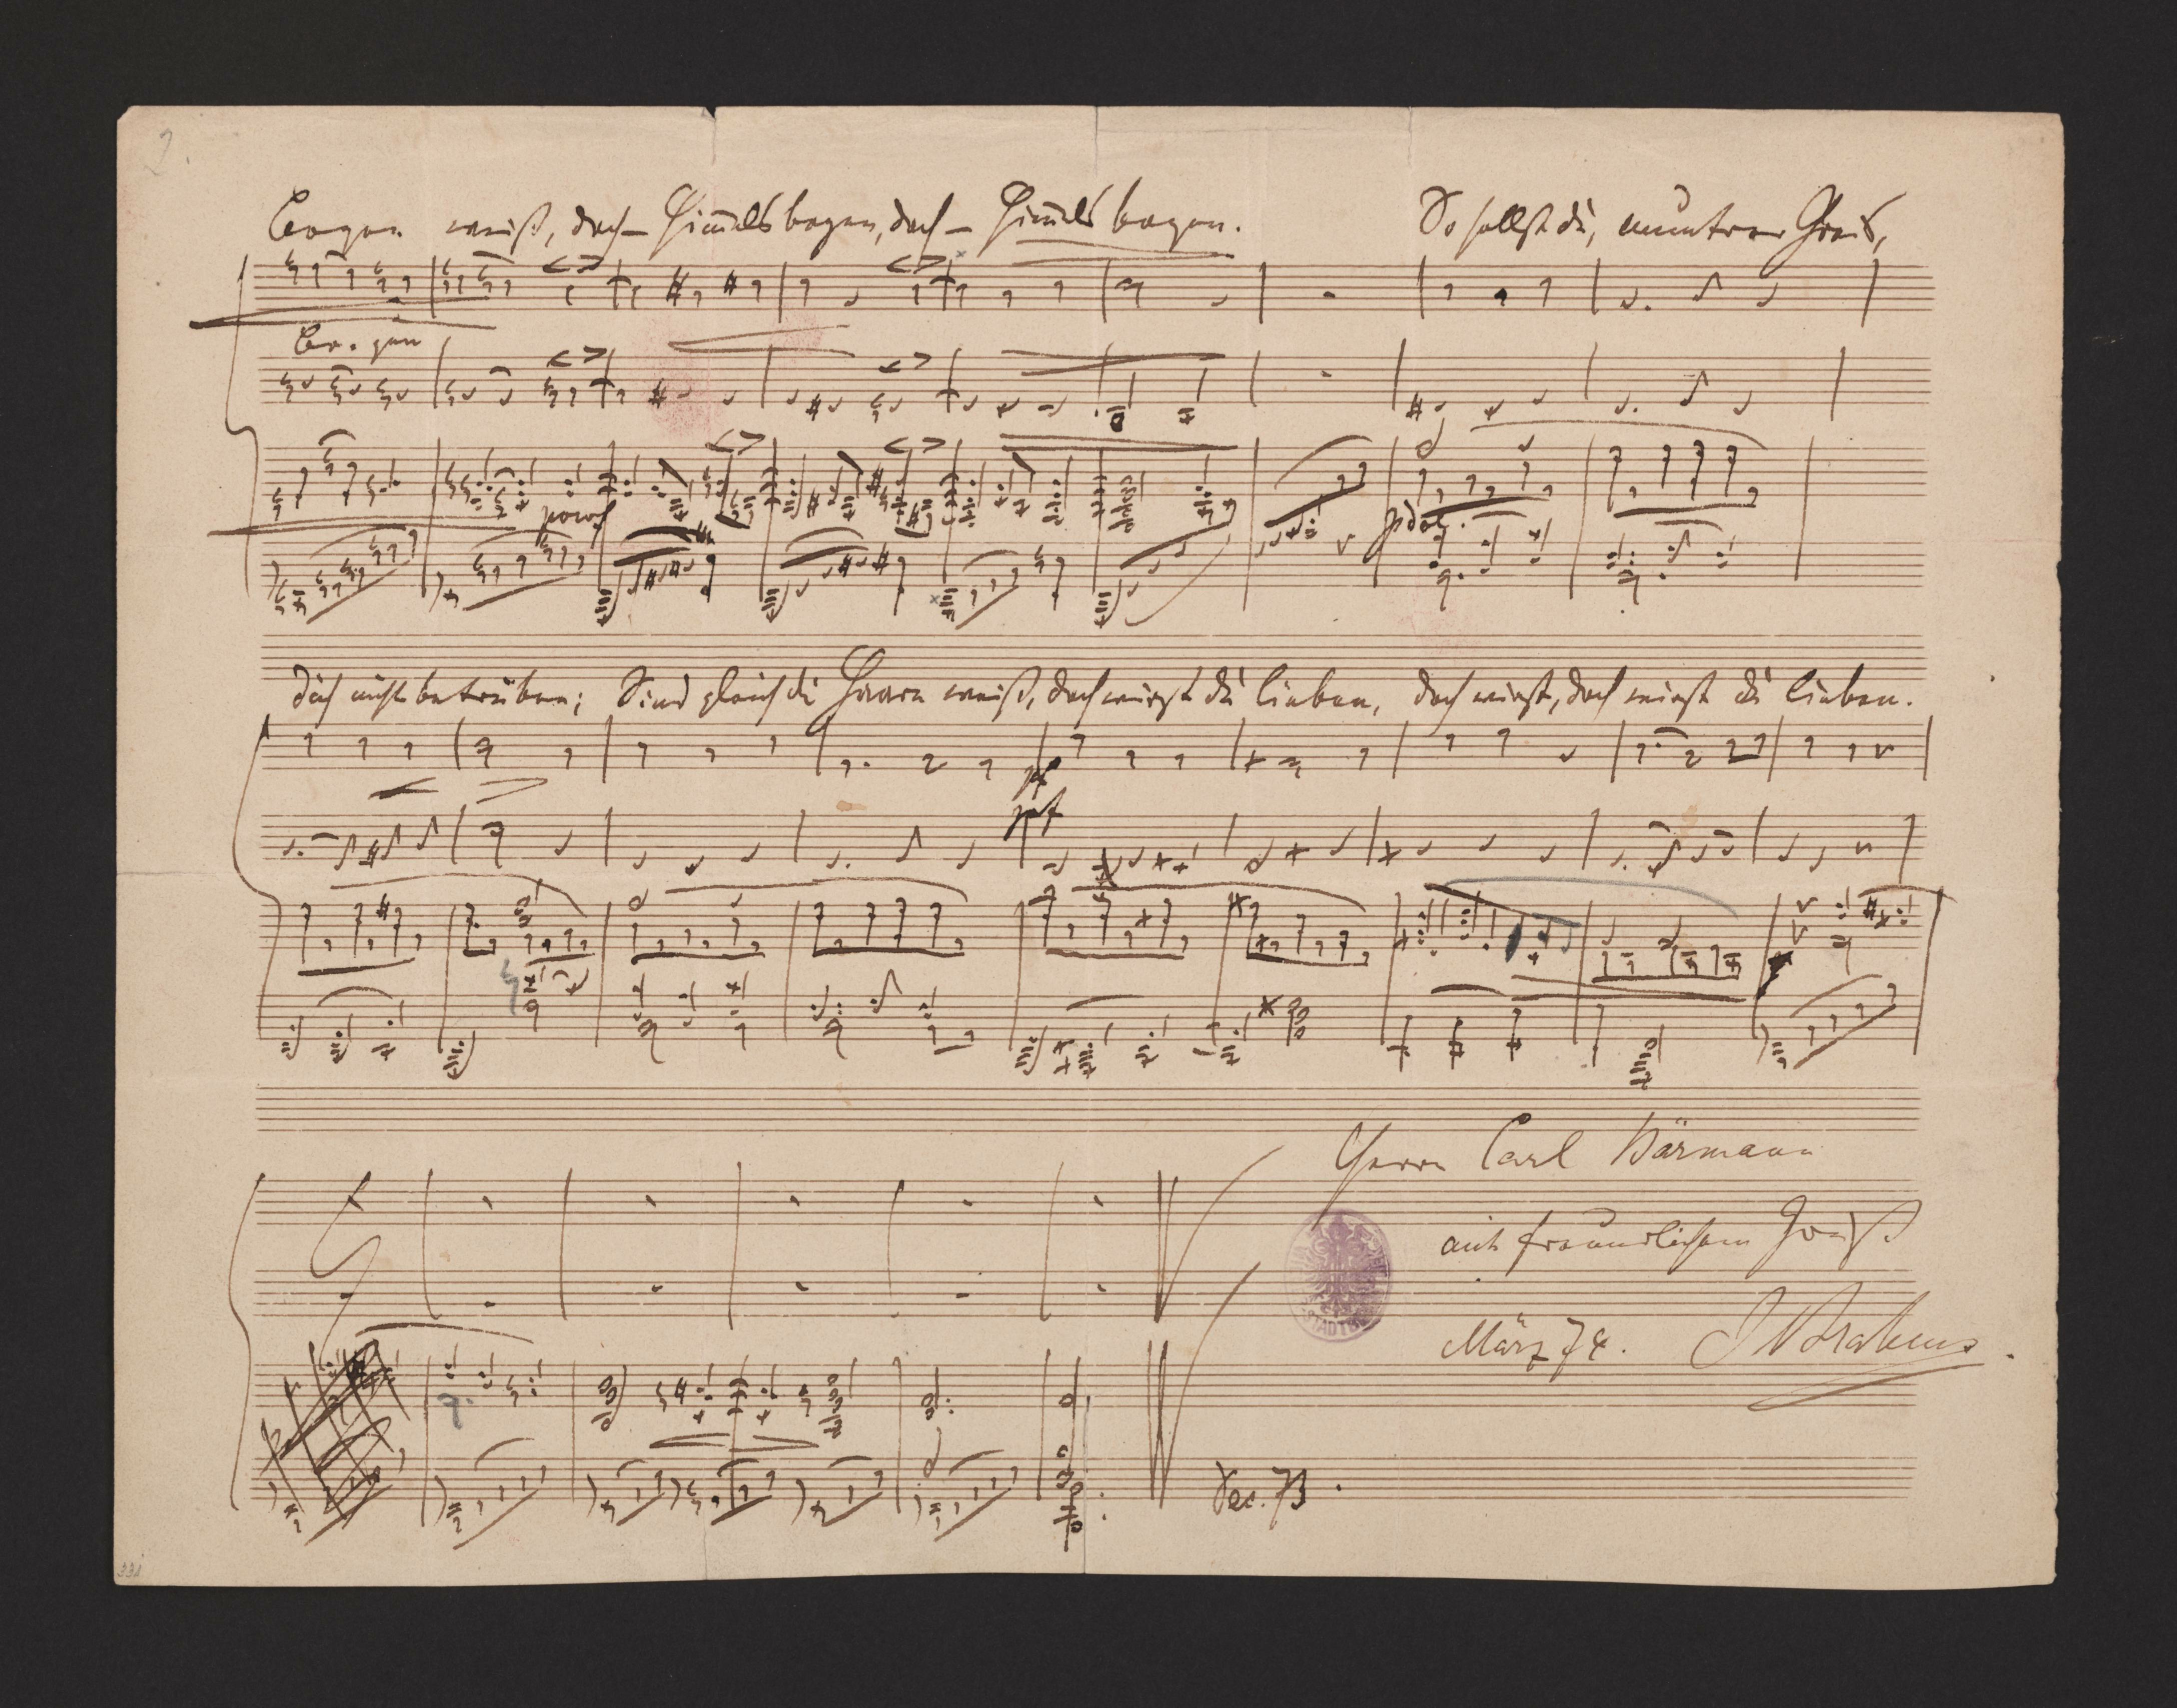 2.
Bogen weiß, doch Him̄elsbogen, doch Him̄elsbogen. So sollst du, muntrer Greis,
Bo-gen
dich nicht betrüben; Sind gleich die Haare weiß, doch wirst du lieben, doch wirst, doch wirst du lieben.
pf
pf
Herrn Carl Bärmann
mit freundlichem Gruß
März 74. J Brahms.
Dec. 73.